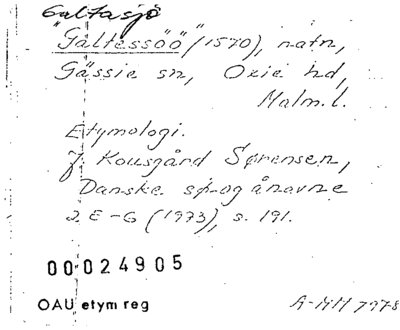 Galtasjö
"Galtessöö" (1570), natn,
Gässie sn, Oxie hd,
Malm. l.
Etymologi.
J. Kousgård Sørensen,
Danske sø- og ånavne
2 E-G (1973), s. 191.
00024905
OAU etym reg
A-MH 7978